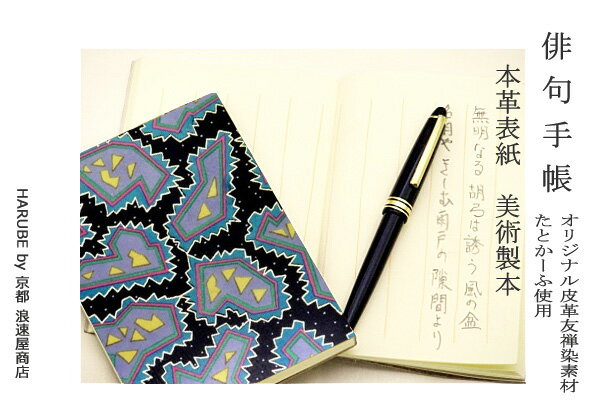 俳句手帳
本革表紙　美術製本
オリジナル皮革友禅染素材
たとかーふ使用
無明なる 胡弓は誘う 風の盆
名月や きしむ雨戸の 隙間より
HARUBE by 京都 浪速屋商店